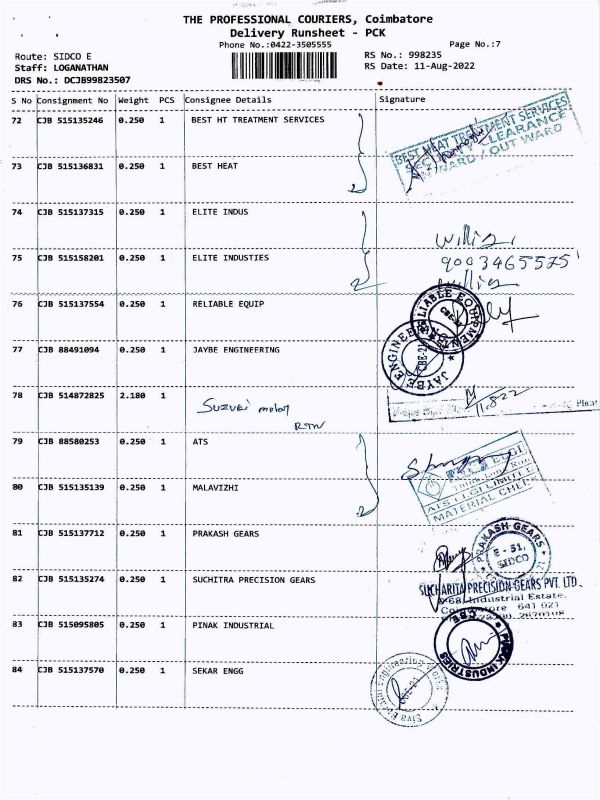 THE PROFESSIONAL COURIERS, Coimbatore
Delivery Runsheet - PCK
Phone No.:0422-3505555
Page No.:7
Route: SIDCO E
RS No.: 998235
Staff: LOGANATHAN
RS Date: 11-Aug-2022
DRS No.: DCJB99823507
S No Consignment No Weight PCS Consignee Details Signature
72 CJB 515135246 0.250 1 BEST HT TREATMENT SERVICES
BEST HEAT TREATMENT SERVICES
CLEARANCE
INWARD / OUT WARD
73 CJB 515136831 0.250 1 BEST HEAT
2
74 CJB 515137315 0.250 1 ELITE INDUS
75 CJB 515158201 0.250 1 ELITE INDUSTIES
2
76 CJB 515137554 0.250 1 RELIABLE EQUIP
RELIABLE EQUIPMENTS
77 CJB 88491094 0.250 1 JAYBE ENGINEERING
JAYBE ENGINEE
CBE-21
78 CJB 514872825 2.180 1
Suzuki motor
RTN
Plant
79 CJB 88580253 0.250 1 ATS
ATS ELGI LIMITED
MATERIAL CHE
80 CJB 515135139 0.250 1 MALAVIZHI
2
81 CJB 515137712 0.250 1 PRAKASH GEARS
PRAKASH GEARS
E - 51,
SIDCO
82 CJB 515135274 0.250 1 SUCHITRA PRECISION GEARS
SUCHARITA PRECISION GEARS PVT. LTD.
Industrial Estate,
Coimbatore 641 021
83 CJB 515095805 0.250 1 PINAK INDUSTRIAL
PINAK INDUSTRIES
84 CJB 515137570 0.250 1 SEKAR ENGG